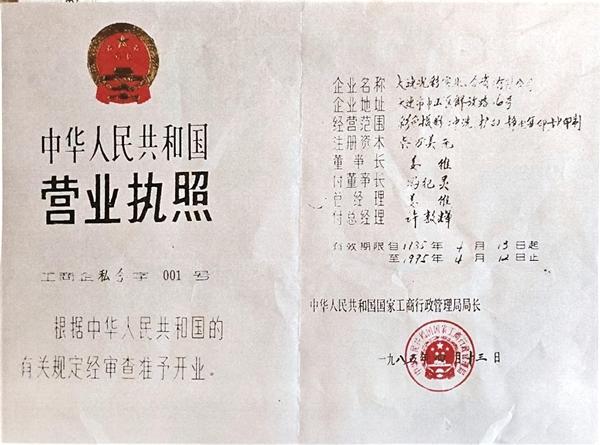 中华人民共和国
营业执照
工商企私合字 001 号
根据中华人民共和国的
有关规定经审查准予开业。
企业名称 大连光彩实业合资有限公司
企业地址 大连市中山区解放路
经营范围 彩色摄影、冲洗、扩印
注册资本 六万美元
董事长 姜维
付董事长 冯纪灵
总经理 姜维
付总经理 许
有效期限自1985年4月13日起
至1995年4月12日止
中华人民共和国国家工商行政管理局局长
一九八五年四月十三日